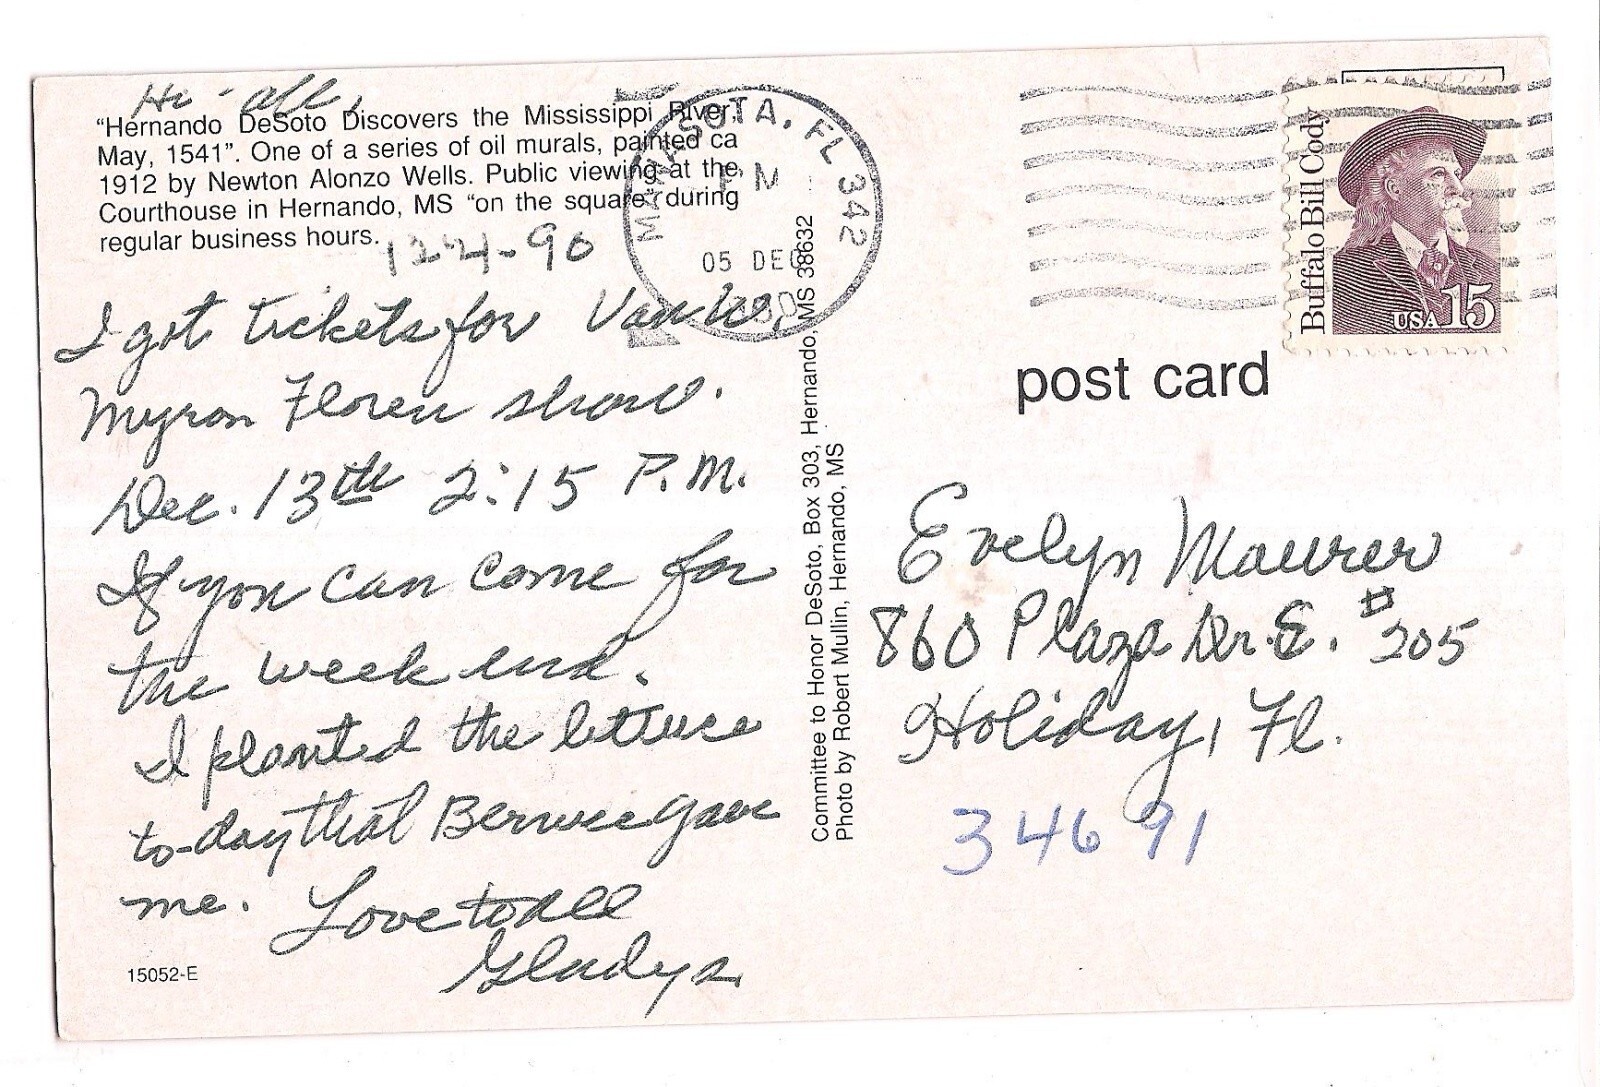 Hi - all,
"Hernando DeSoto Discovers the Mississippi River,
May, 1541". One of a series of oil murals, painted ca
1912 by Newton Alonzo Wells. Public viewing at the
Courthouse in Hernando, MS "on the square" during
regular business hours.
12-4-90
I got tickets for Van W.
Myron Floren show.
Dec. 13th 2:15 P.M.
If you can come for
the week end.
I planted the lettuce
to-day that Bernice gave
me. Love to all
Gladys.
15052-E
Committee to Honor DeSoto, Box 303, Hernando, MS 38632
Photo by Robert Mullin, Hernando, MS
SOTA, FL 342
PM
05 DEC
Buffalo Bill Cody
USA 15
post card
Evelyn Maurer
860 Plaza Dr. E. #205
Holiday, Fl.
34691